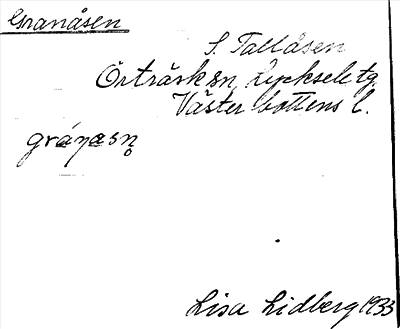 Granåsen
S. Tallåsen
Örträsk sn, Lycksele tg.
Västerbottens l.
gránæsn̥
Lisa Lidberg 1933